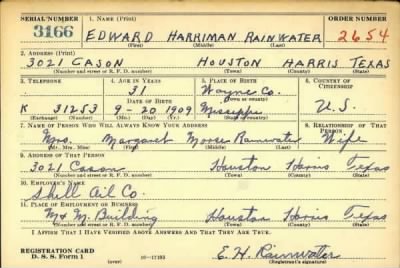 SERIAL NUMBER 1. NAME (Print) ORDER NUMBER
3166 EDWARD HARRIMAN RAINWATER 2654
(First) (Middle) (Last)
2. ADDRESS (Print)
3021 CASON HOUSTON HARRIS TEXAS
(Number and street or R. F. D. number) (Town) (County) (State)
3. TELEPHONE 4. AGE IN YEARS 5. PLACE OF BIRTH 6. COUNTRY OF CITIZENSHIP
31 Wayne Co.
DATE OF BIRTH (Town or county)
K 31253 9-20-1909 Mississippi U.S.
(Exchange) (Number) (Mo.) (Day) (Yr.) (State or country)
7. NAME OF PERSON WHO WILL ALWAYS KNOW YOUR ADDRESS 8. RELATIONSHIP OF THAT PERSON
Mrs. Margaret Moore Rainwater Wife
(Mr., Mrs., Miss) (First) (Middle) (Last)
9. ADDRESS OF THAT PERSON
3021 Cason Houston Harris Texas
(Number and street or R. F. D. number) (Town) (County) (State)
10. EMPLOYER'S NAME
Shell Oil Co.
11. PLACE OF EMPLOYMENT OR BUSINESS
M & M Building Houston Harris Texas
(Number and street or R. F. D. number) (Town) (County) (State)
I AFFIRM THAT I HAVE VERIFIED ABOVE ANSWERS AND THAT THEY ARE TRUE.
REGISTRATION CARD E. H. Rainwater
D. S. S. Form 1 16—17105 (Registrant's signature)